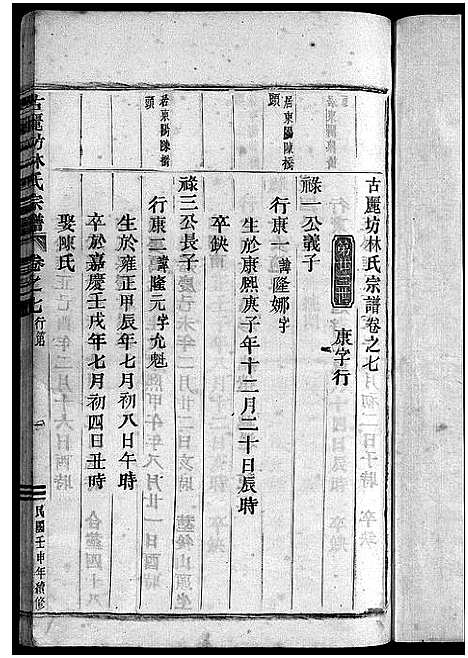 古麗坊林氏宗譜卷之七
康字行
祿一公義子
居東陽陳橋頭
行康一諱隆娜字
生於康熙庚子年十二月二十日辰時
卒缺
祿三公長子
居東陽陳橋頭
行康二諱隆元字允魁
生於雍正甲辰年七月初八日午時
卒於嘉慶壬戌年七月初四日丑時
娶陳氏
古麗坊林氏宗譜 卷之七 行第 一 民國壬申年續修